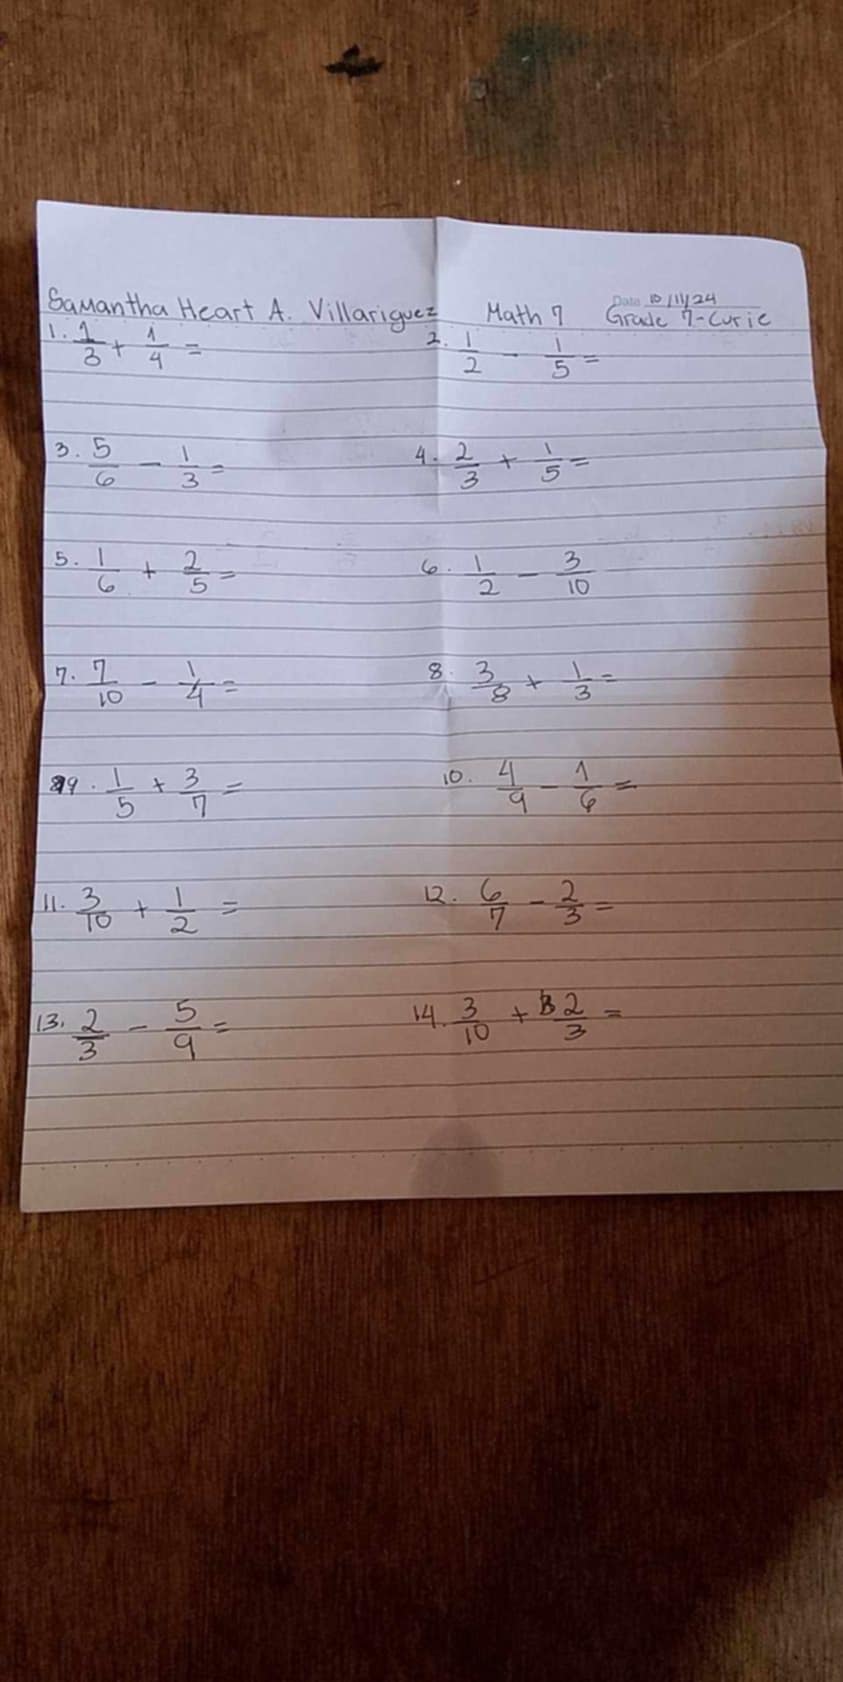 Samantha Heart A. Villariguez Math 7 Date 10/11/24
Grade 7-Curie
1. 1/3 + 1/4 = 2. 1/2 - 1/5 =
3. 5/6 - 1/3 = 4. 2/3 + 1/5 =
5. 1/6 + 2/5 = 6. 1/2 - 3/10
7. 7/10 - 1/4 = 8. 3/8 + 1/3 =
9. 1/5 + 3/7 = 10. 4/9 - 1/6 =
11. 3/10 + 1/2 = 12. 6/7 - 2/3 =
13. 2/3 - 5/9 = 14. 3/10 + 2/3 =